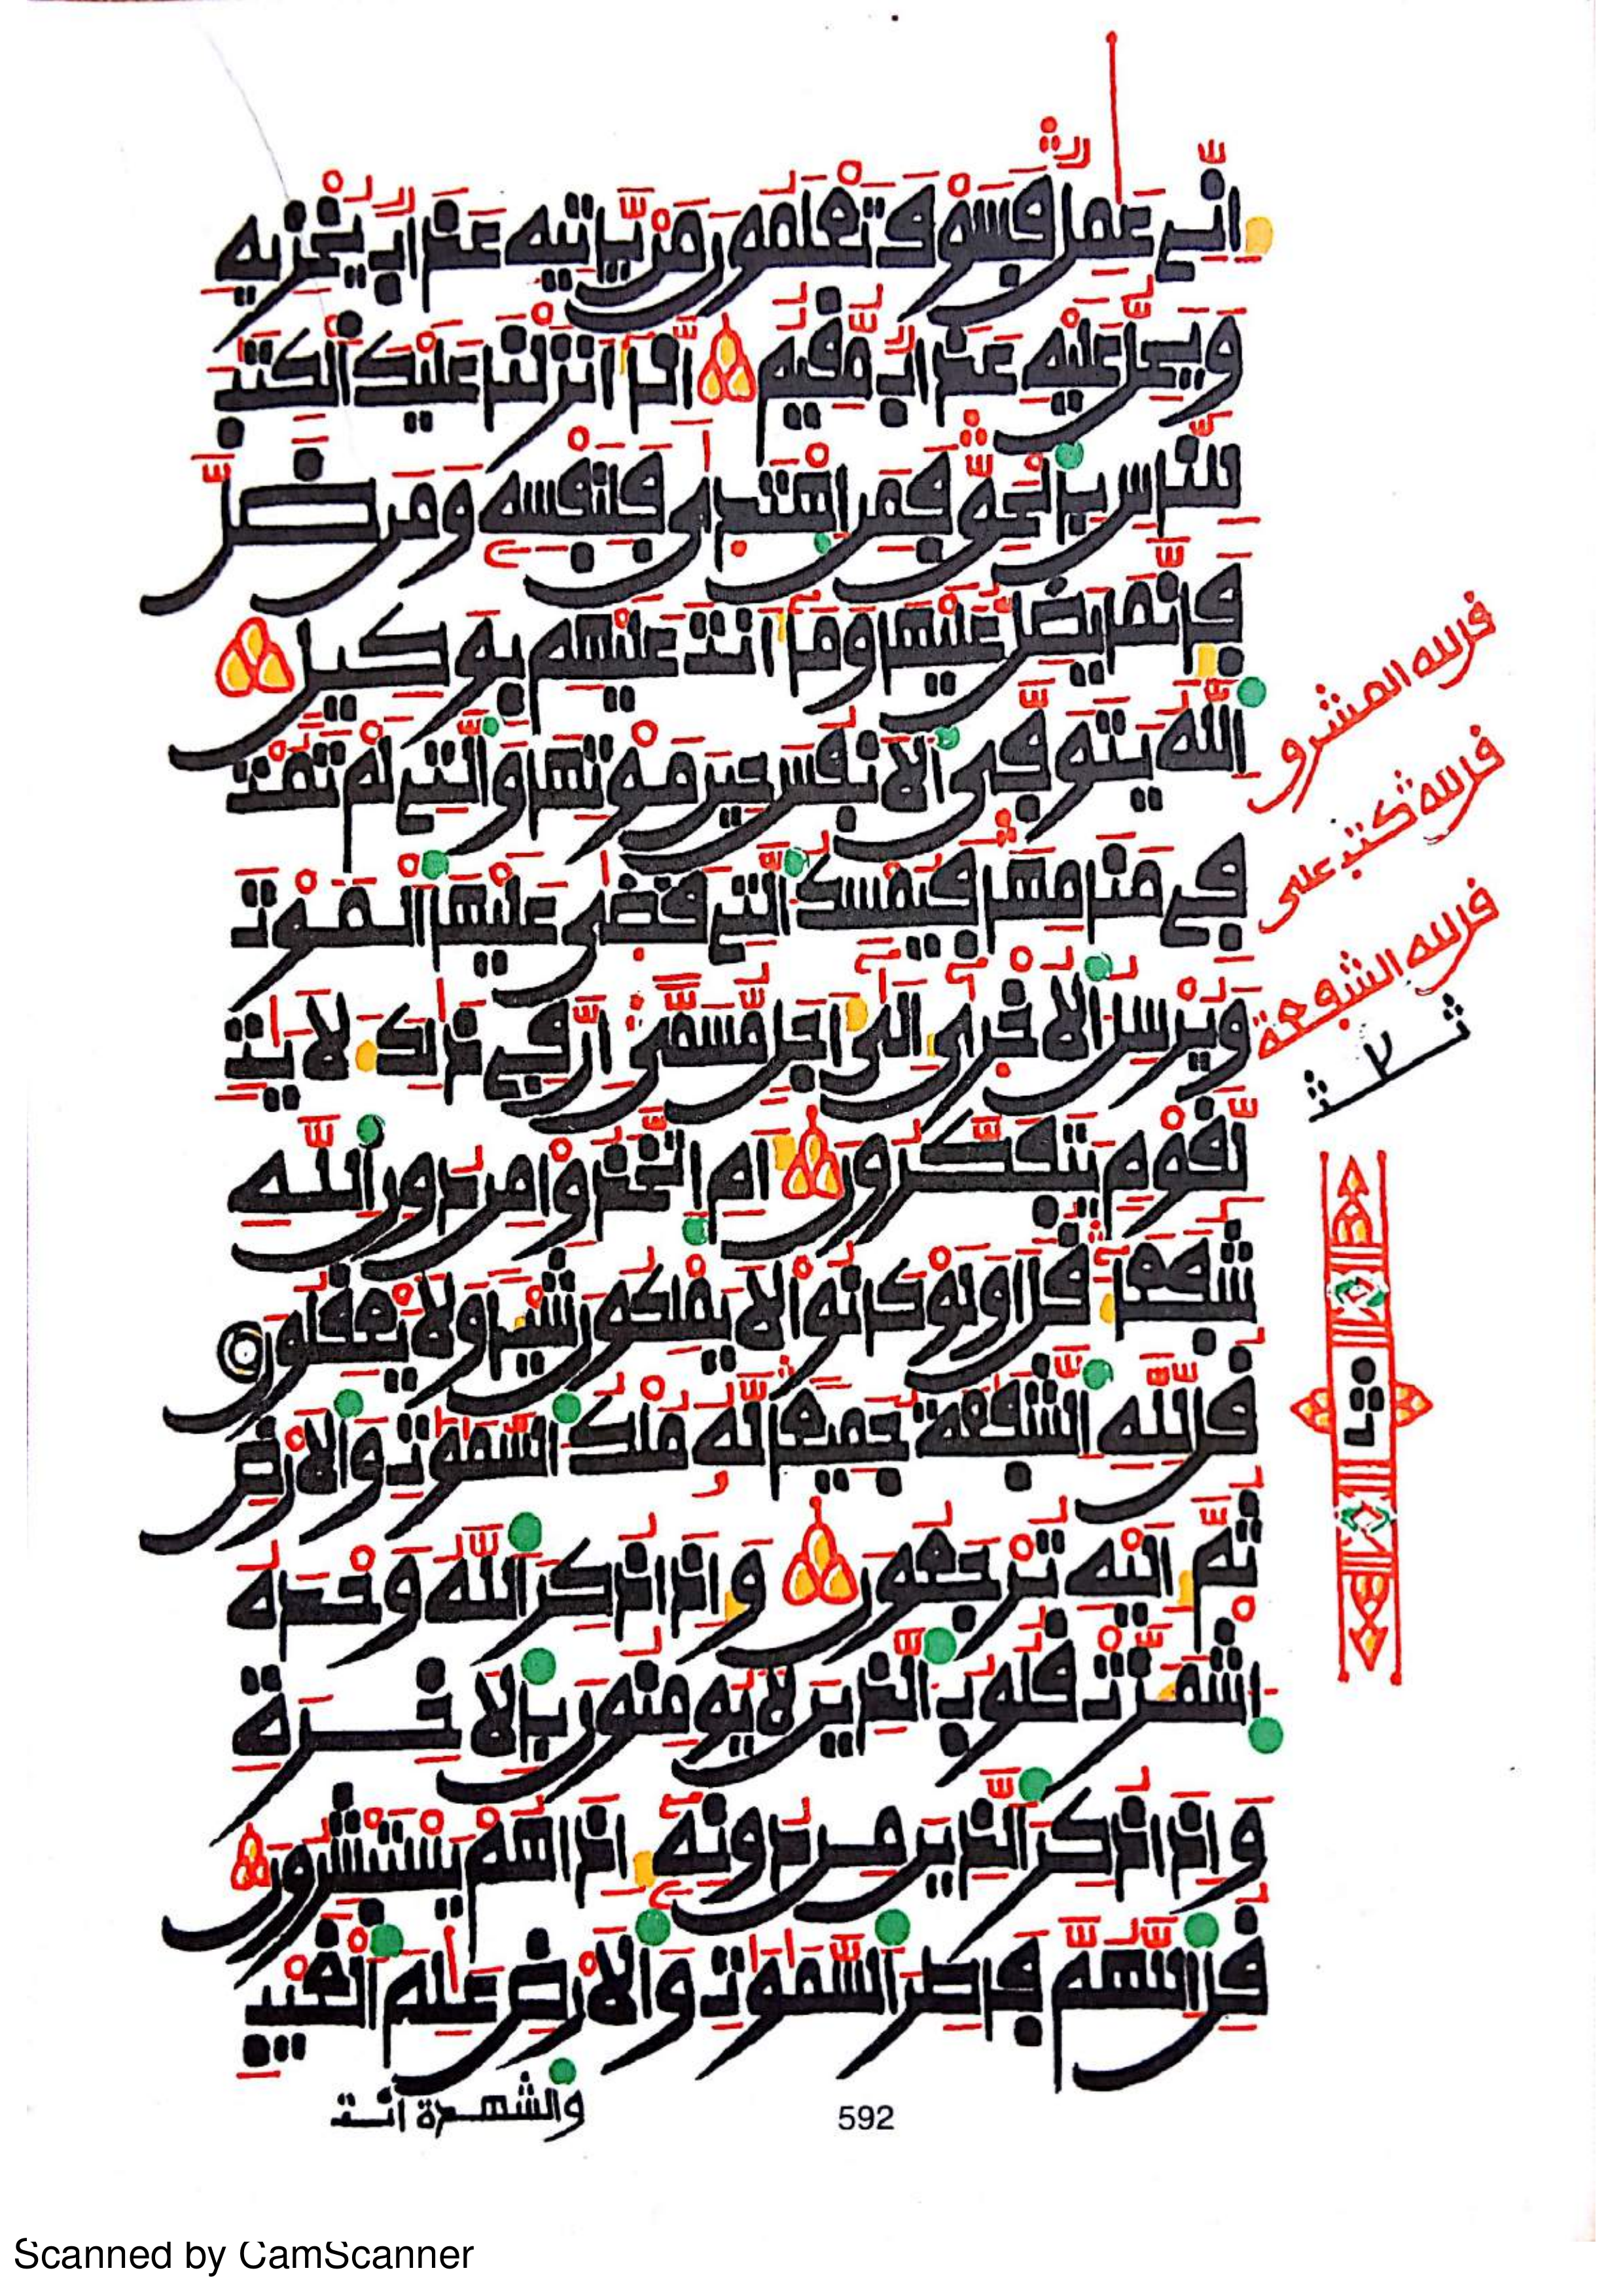 إِنِّے عَٰمِلٌ فَسَوْفَ تَعْلَمُونَ مَنْ يَّاتِيهِ عَذَابٌ يُخْزِيهِ
وَيَحِلُّ عَلَيْهِ عَذَابٌ مُّقِيمٌ اِنَّا أَنزَلْنَا عَلَيْكَ اَلْكِتَٰبَ
لِلنَّاسِ بِالْحَقِّ فَمَنِ اِهْتَدَىٰ فَلِنَفْسِهِ وَمَن ضَلَّ
فَإِنَّمَا يَضِلُّ عَلَيْهَا وَمَا أَنتَ عَلَيْهِم بِوَكِيلٍ
اِللَّهُ يَتَوَفَّى اَلَانفُسَ حِينَ مَوْتِهَا وَالتِے لَمْ تَمُتْ
فِے مَنَامِهَا فَيُمْسِكُ اُلتِے قَضَىٰ عَلَيْهَا اَلْمَوْتَ
وَيُرْسِلُ اُلُاخْرَىٰ إِلَىٰ أَجَلٍ مُّسَمًّى اِنَّ فِے ذَٰلِكَ لَأيَٰتٍ
لِّقَوْمٍ يَتَفَكَّرُونَ أَمِ اِتَّخَذُواْ مِن دُونِ اِللَّهِ
شُفَعَاءَ قُلَ اَوَلَوْ كَانُواْ لَا يَمْلِكُونَ شَيْـاً وَلَا يَعْقِلُونَ
قُل لِّلهِ اِلشَّفَٰعَةُ جَمِيعاً لَّهُ مُلْكُ اُلسَّمَٰوَٰتِ وَالَارْضِ
ثُمَّ إِلَيْهِ تُرْجَعُونَ وَإِذَا ذُكِرَ اَللَّهُ وَحْدَهُ
اُشْمَأَزَّتْ قُلُوبُ اُلذِينَ لَا يُومِنُونَ بِالَاخِرَةِ
وَإِذَا ذُكِرَ اَلذِينَ مِن دُونِهِ إِذَا هُمْ يَسْتَبْشِرُونَ
قُلِ اِللَّهُمَّ فَاطِرَ اَلسَّمَٰوَٰتِ وَالَارْضِ عَٰلِمَ اَلْغَيْبِ
والشهدة انت
592
قل لله المشرق
قل لله كتب على
قل لله الشفعة
Scanned by CamScanner